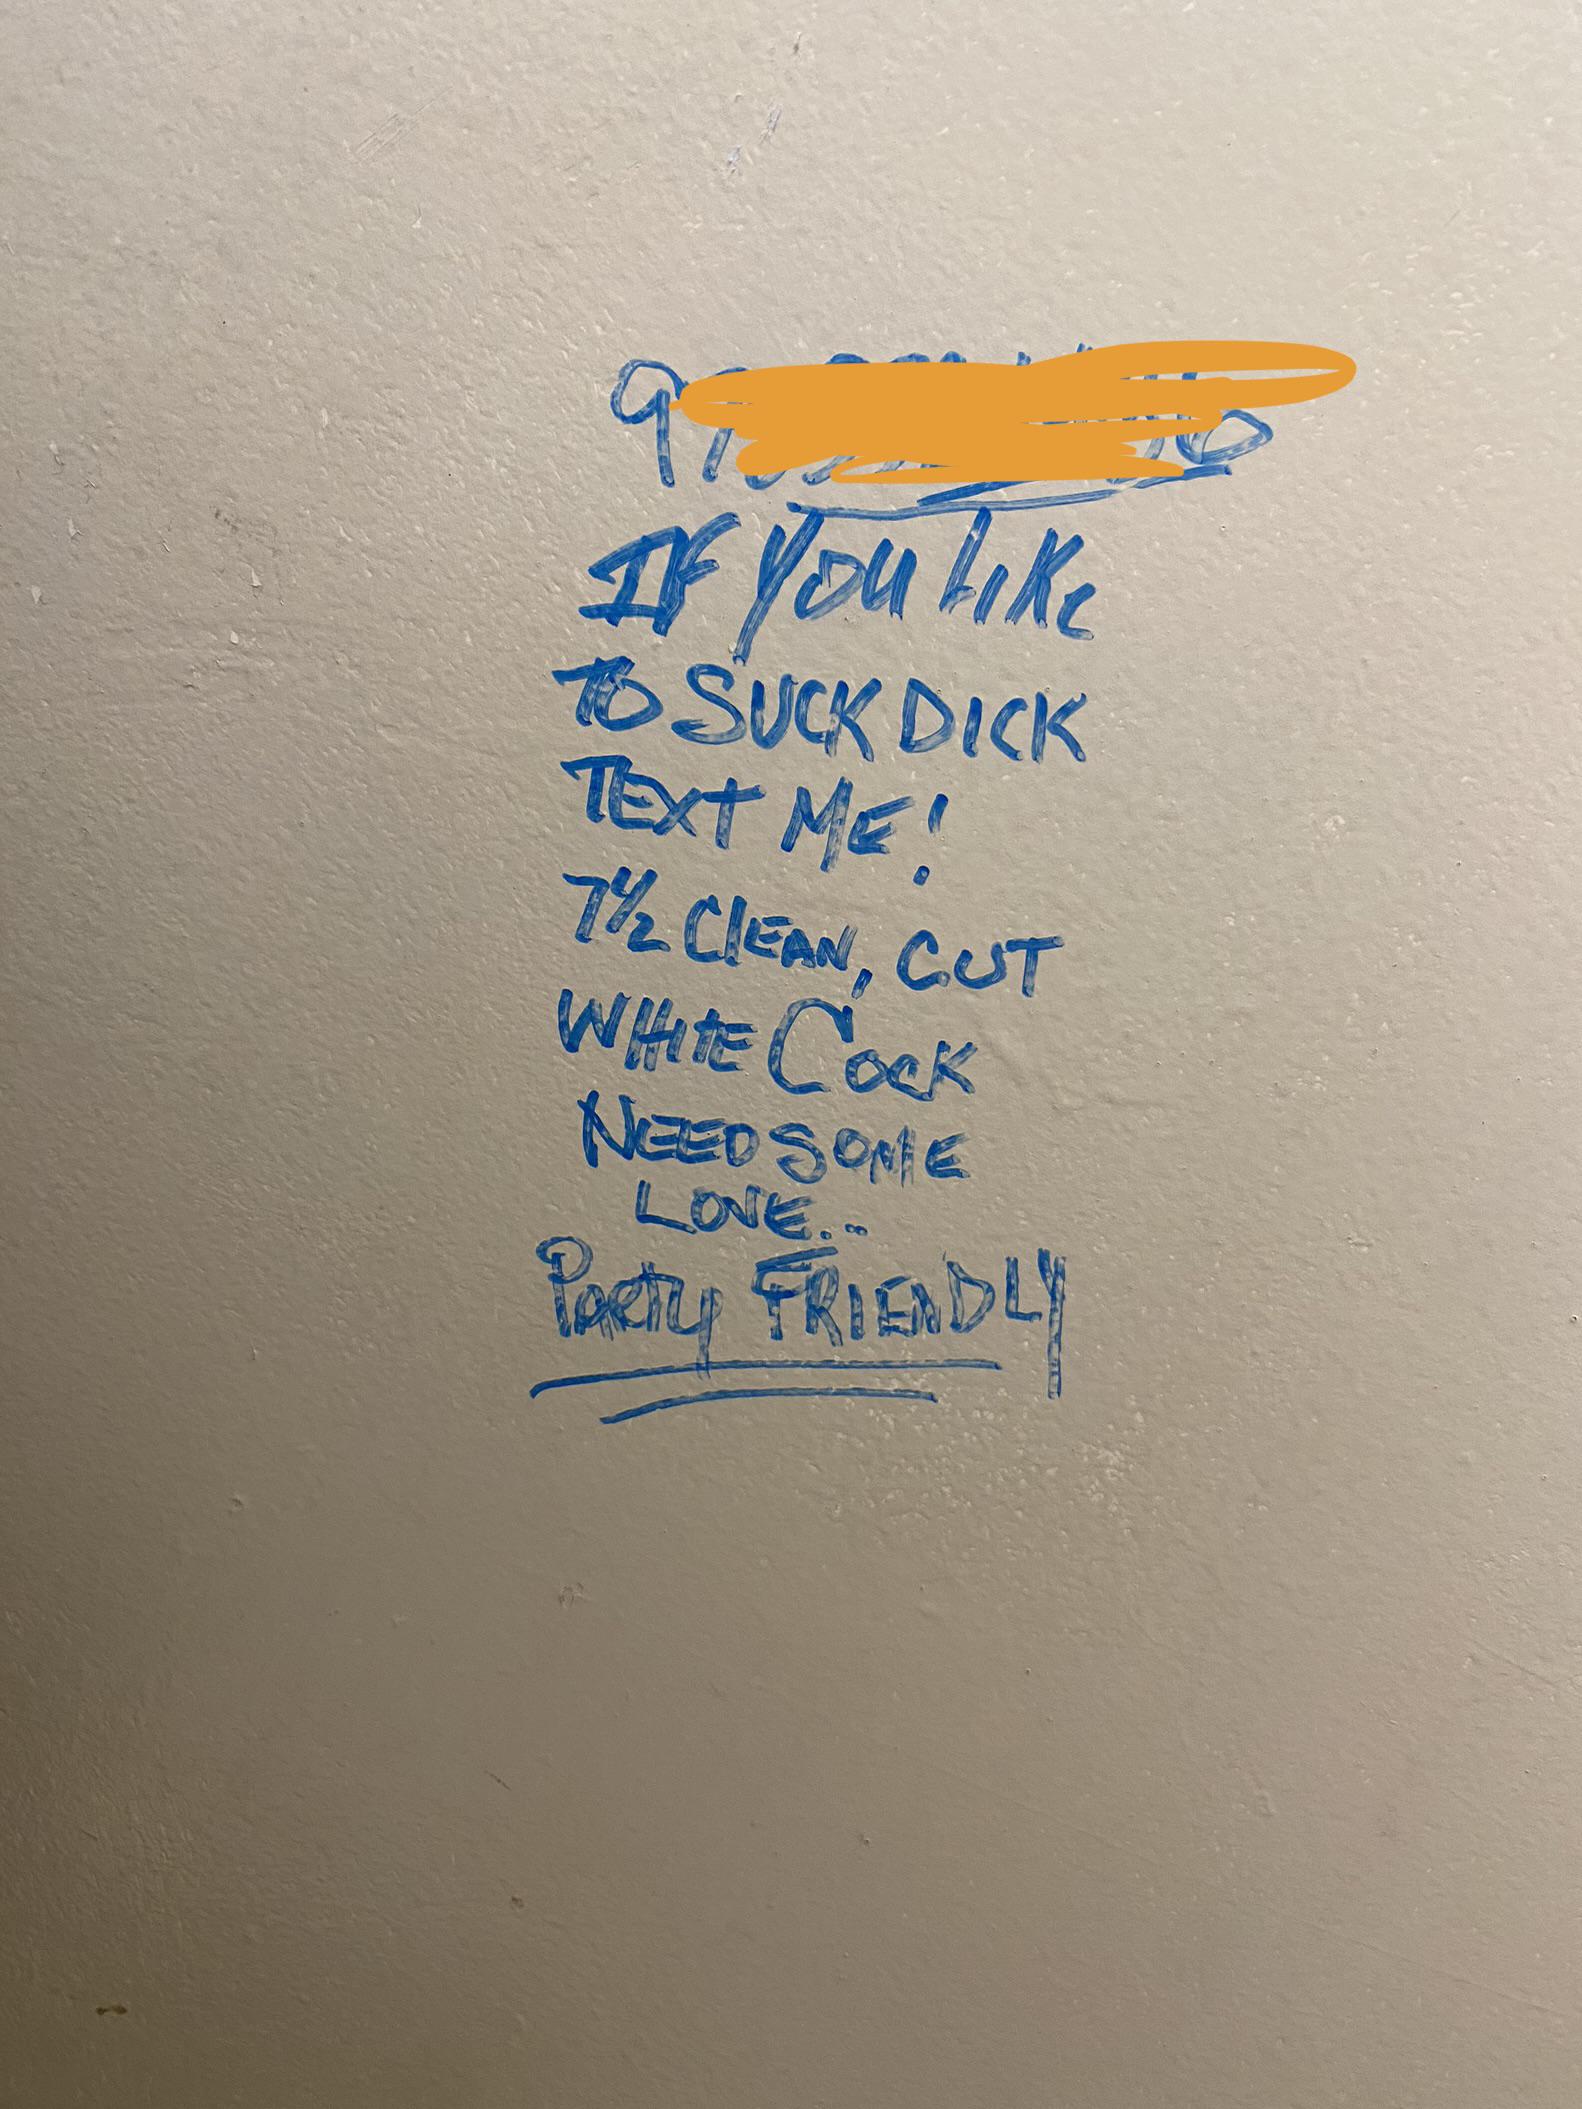 If you Like
To SUCK DICK
TEXT ME!
7½ ClEAN, CUT
WHITE COCK
NEED SOME
LOVE...
PARTy FRIENDLY